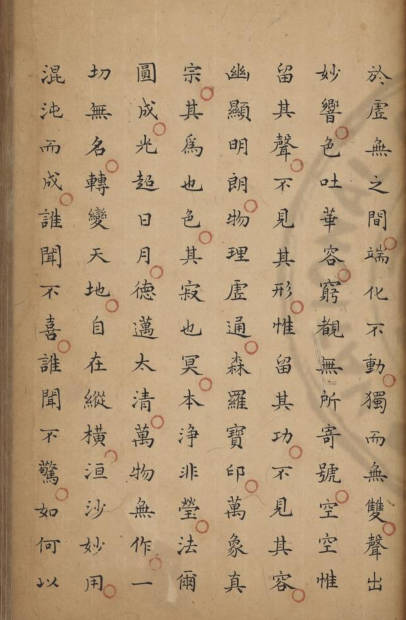 於虛無之間端化不動獨而無雙聲出
妙響色吐華容窮覩無所寄號空空惟
留其聲不見其形惟留其功不見其容
幽顯明朗物理虛通森羅寶印萬象真
宗其爲也色其寂也冥本淨非瑩法爾
圓成光超日月德邁太清萬物無作一
切無名轉變天地自在縱橫洹沙妙用
混沌而成誰聞不喜誰聞不驚如何以